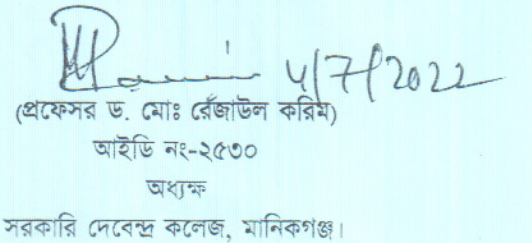 4/7/2022
(প্রফেসর ড. মোঃ রেঁজাউল করিম)
আইডি নং-২৫৩০
অধ্যক্ষ
সরকারি দেবেন্দ্র কলেজ, মানিকগঞ্জ।